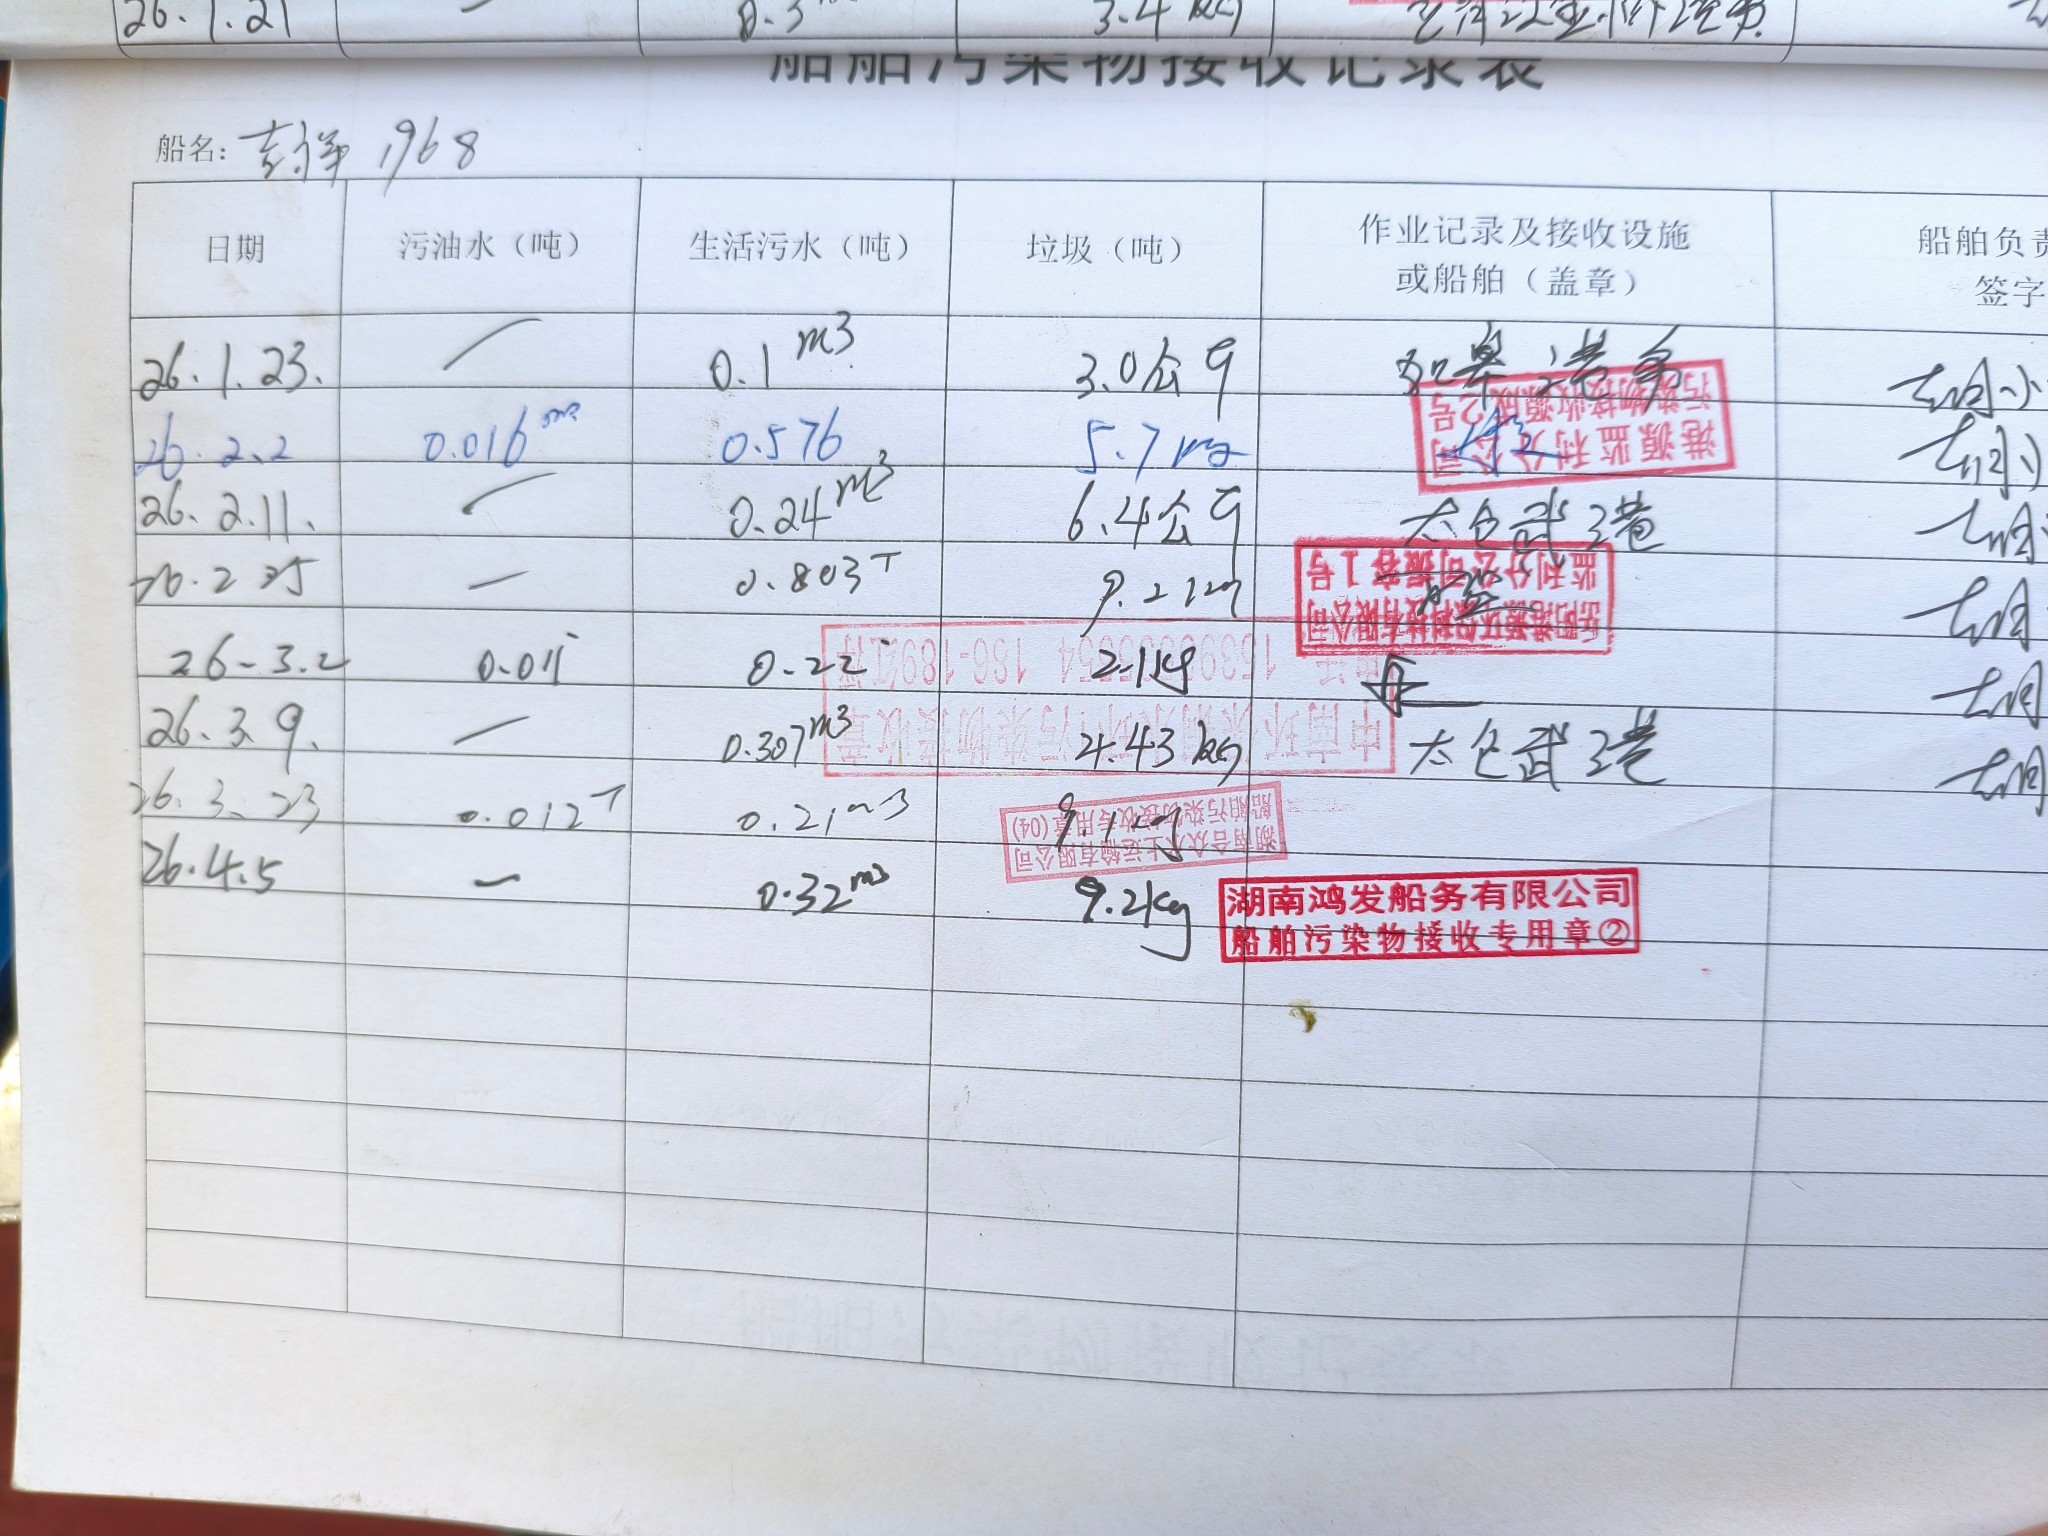 26.1.21 — 0.3 3.4 kg
船舶污染物接收记录表
船名: 彭洋 1968
日期 污油水（吨） 生活污水（吨） 垃圾（吨） 作业记录及接收设施 船舶负责
或船舶（盖章） 签字
26.1.23. / 0.1 m3 3.0公斤 如皋港务
污染物接收源成2号
26.2.2 0.016 m3 0.576 5.7 kg
港源监利分公司
26.2.11. / 0.24 m3 6.4公斤 太仓武港
监利分公司 1号
26.2.25 — 0.803T 9.2 kg
岳阳港源环保科技有限公司
26-3.2 0.01 0.22 2.1kg
26.3.9. — 0.307m3 4.43 kg 太仓武港
污染物接收章
26.3.23 0.012T 0.21m3 9.1kg
湖南合众水上运输有限公司
船舶污染物接收专用章(04)
26.4.5 — 0.32 m3 9.2kg
湖南鸿发船务有限公司
船舶污染物接收专用章②